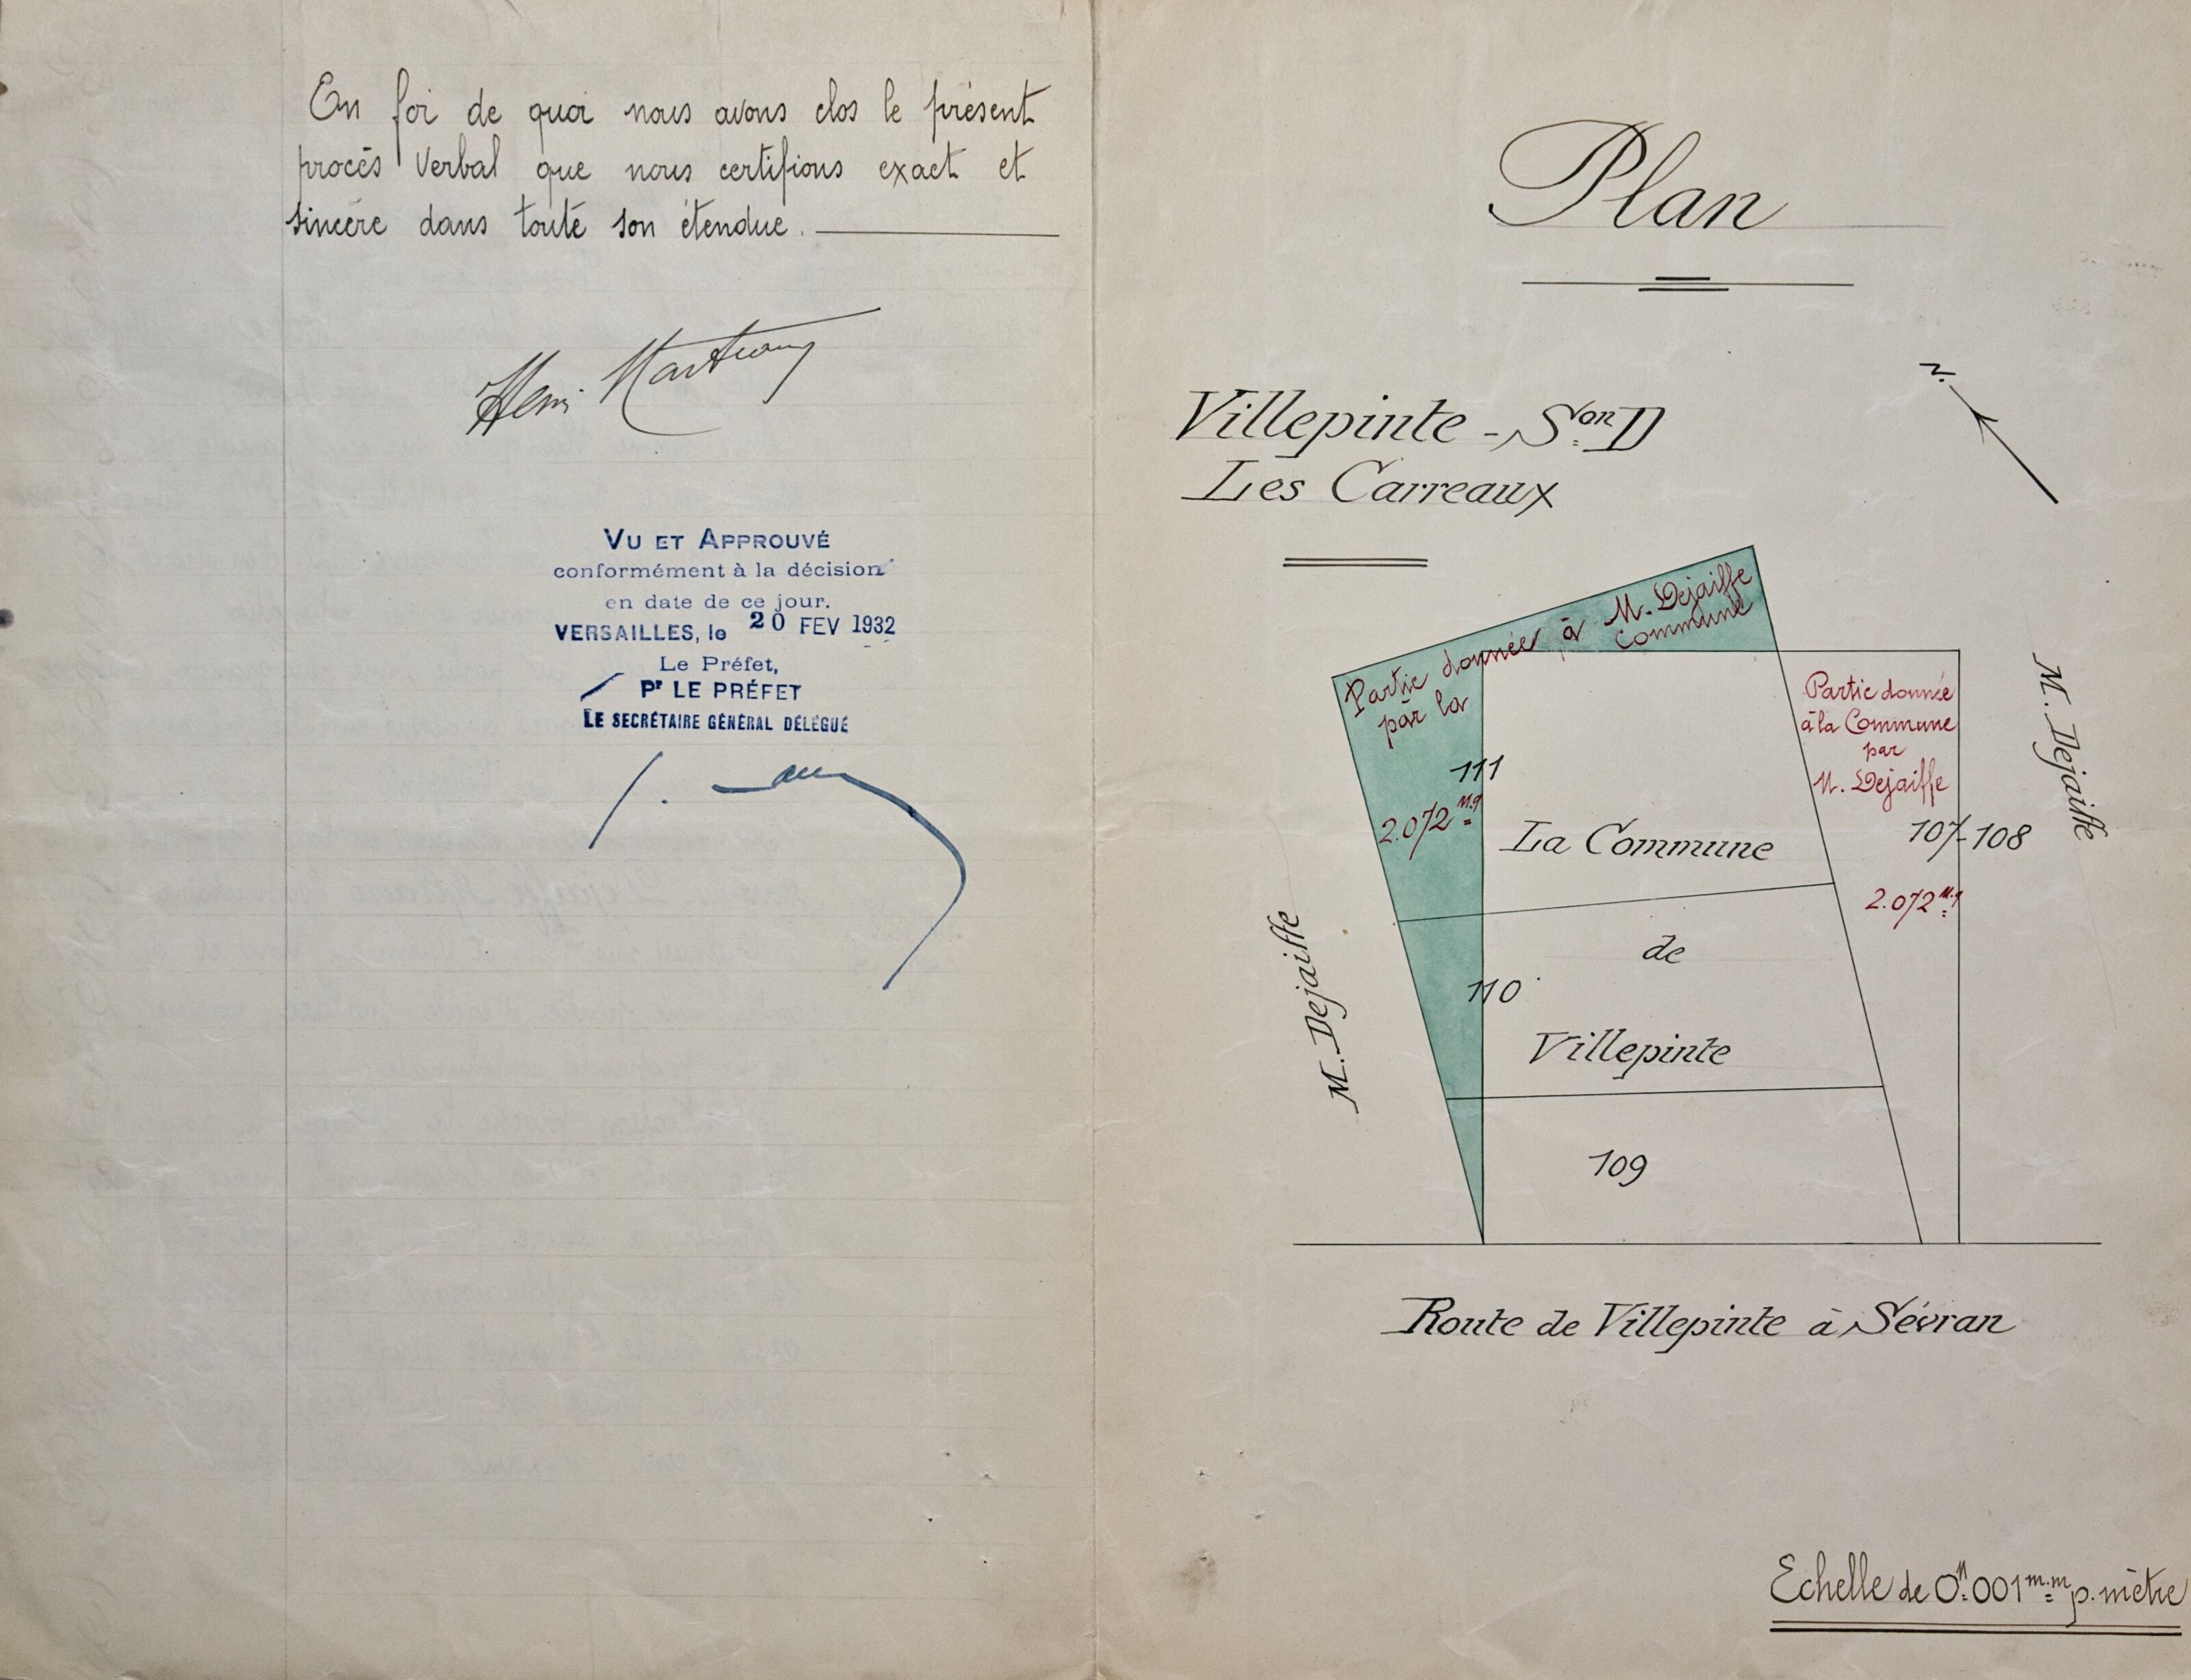 En foi de quoi nous avons clos le présent
procès verbal que nous certifions exact et
sincère dans toute son étendue.
Henri
VU ET APPROUVÉ
conformément à la décision
en date de ce jour.
VERSAILLES, le 20 FEV 1932
Le Préfet,
Pr LE PRÉFET
LE SECRÉTAIRE GÉNÉRAL DÉLÉGUÉ
Plan
N.
Villepinte - Son D
Les Carreaux
Partie donnée à M. Dejaiffe
par la Commune
111
2.072 M.q
La Commune
de
Villepinte
110
109
Partie donnée
à la Commune
par
M. Dejaiffe
107-108
2.072 M.q
M. Dejaiffe
M. Dejaiffe
Route de Villepinte à Sévran
Echelle de 0M.001 m.m p. mètre